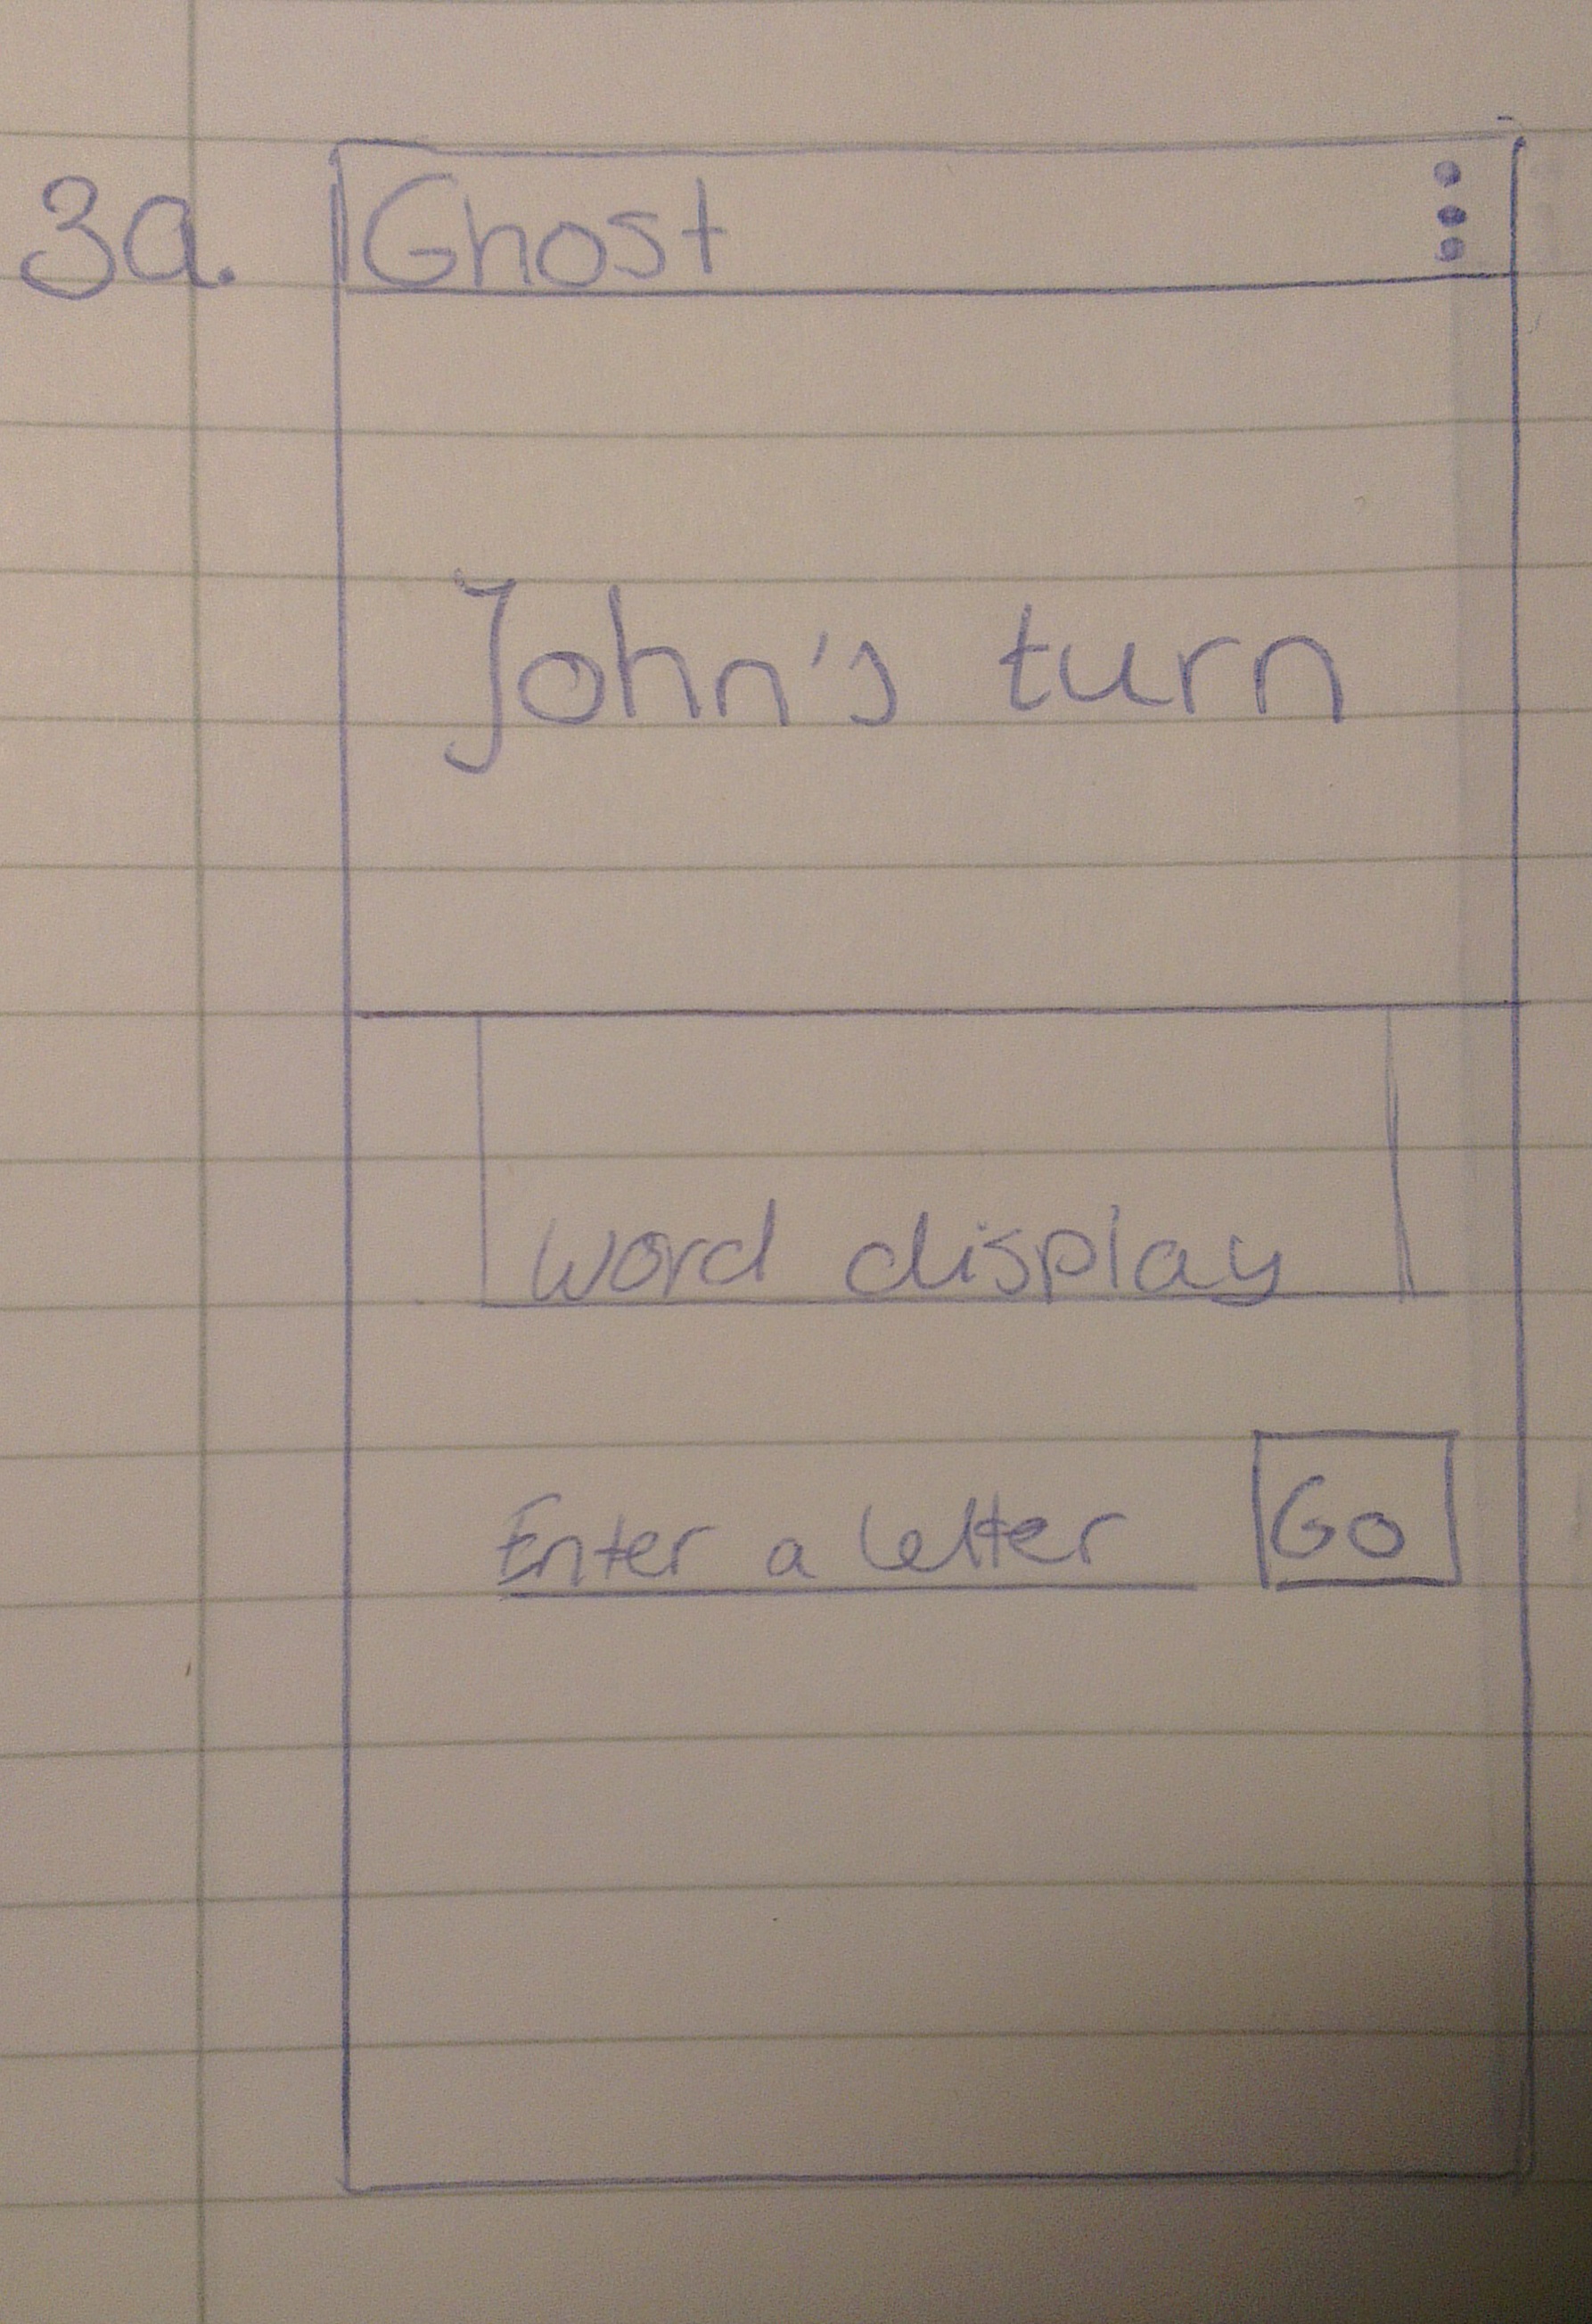 3a.
Ghost
John's turn
word display
Enter a letter Go